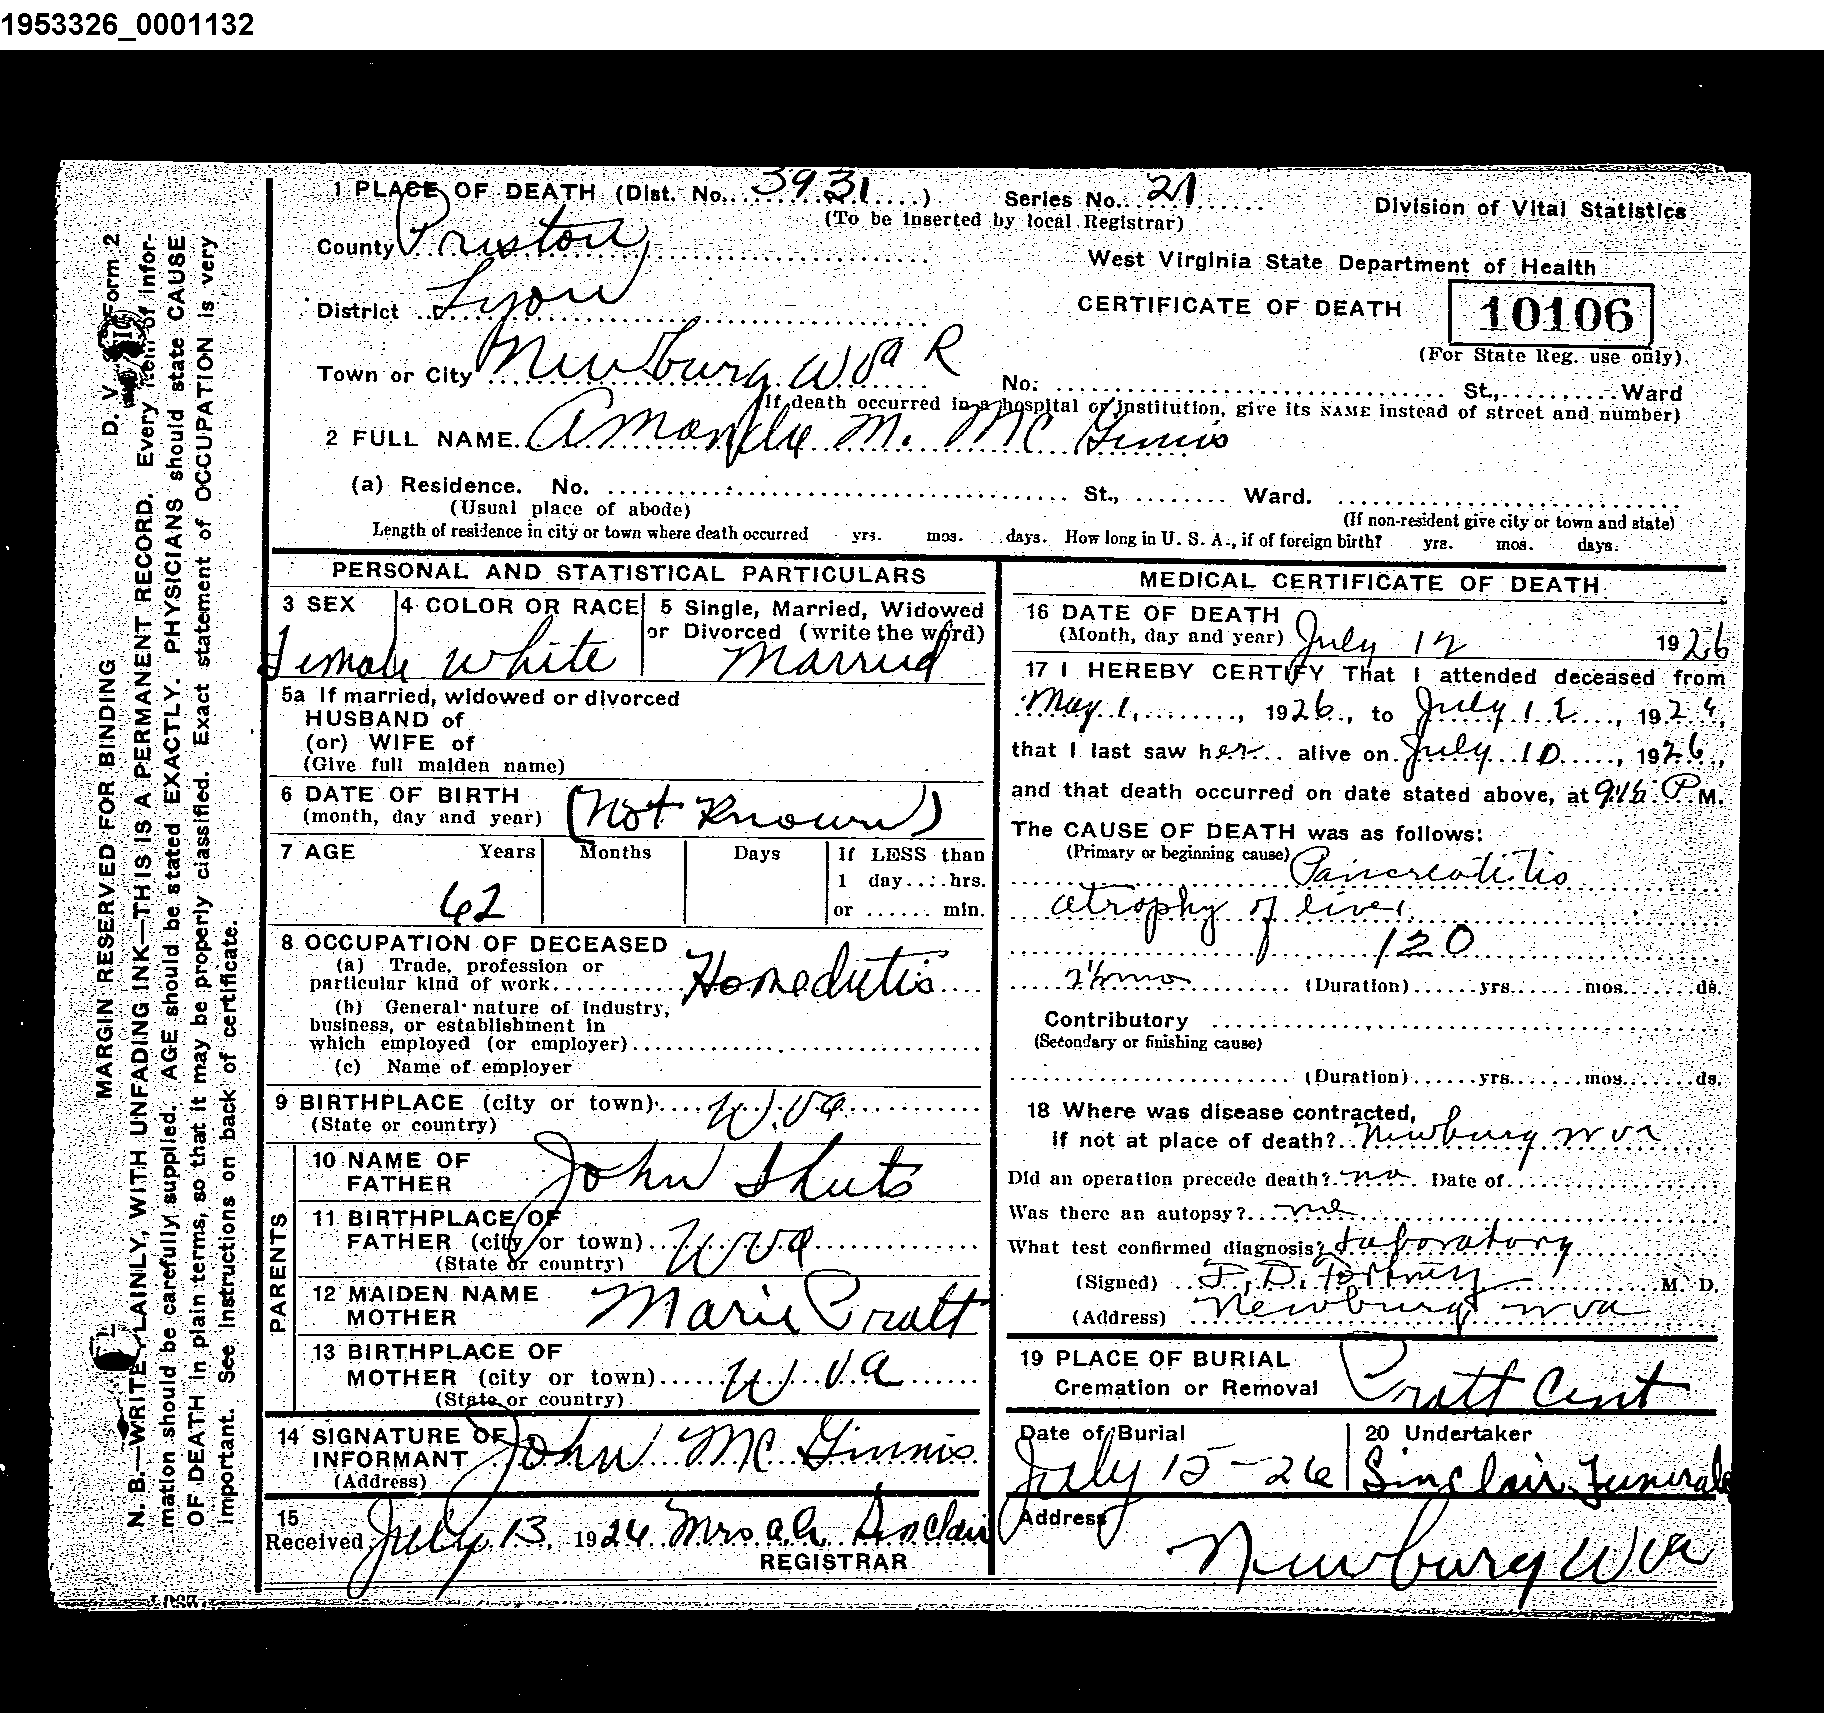 1953326_0001132
1 PLACE OF DEATH (Dist. No. 3931 ) Series No. 21
(To be inserted by local Registrar)
Division of Vital Statistics
County Preston
West Virginia State Department of Health
District Lyon
CERTIFICATE OF DEATH 10106
(For State Reg. use only)
Town or City Newburg W Va R
No. St., Ward
(If death occurred in a hospital or institution, give its NAME instead of street and number)
2 FULL NAME Amanda M. Mc Ginnis
(a) Residence. No. St., Ward.
(Usual place of abode)
(If non-resident give city or town and state)
Length of residence in city or town where death occurred yrs. mos. days. How long in U. S. A., if of foreign birth? yrs. mos. days.
PERSONAL AND STATISTICAL PARTICULARS
3 SEX 4 COLOR OR RACE 5 Single, Married, Widowed
or Divorced (write the word)
Female White Married
5a If married, widowed or divorced
HUSBAND of
(or) WIFE of
(Give full maiden name)
6 DATE OF BIRTH
(month, day and year) (Not Known)
7 AGE Years Months Days If LESS than
1 day....hrs.
62 or ...... min.
8 OCCUPATION OF DECEASED
(a) Trade, profession or
particular kind of work Homedutis
(b) General nature of industry,
business, or establishment in
which employed (or employer)
(c) Name of employer
9 BIRTHPLACE (city or town) W. Va
(State or country)
PARENTS
10 NAME OF
FATHER John Shuts
11 BIRTHPLACE OF
FATHER (city or town) W Va
(State or country)
12 MAIDEN NAME
MOTHER Marie Pratt
13 BIRTHPLACE OF
MOTHER (city or town) W Va
(State or country)
14 SIGNATURE OF
INFORMANT John Mc Ginnis
(Address)
15
Received July 13, 1926 Mrs Sinclair
REGISTRAR
MEDICAL CERTIFICATE OF DEATH
16 DATE OF DEATH
(Month, day and year) July 12 1926
17 I HEREBY CERTIFY That I attended deceased from
May 1, 1926, to July 12, 1926,
that I last saw her alive on July 10, 1926,
and that death occurred on date stated above, at P M.
The CAUSE OF DEATH was as follows:
(Primary or beginning cause) Pancreatitis
atrophy of liver
120
2½ mo (Duration) yrs. mos. ds.
Contributory
(Secondary or finishing cause)
(Duration) yrs. mos. ds.
18 Where was disease contracted,
if not at place of death? Newburg W Va
Did an operation precede death? no Date of
Was there an autopsy? no
What test confirmed diagnosis? Laboratory
(Signed) M. D.
(Address) Newburg W Va
19 PLACE OF BURIAL
Cremation or Removal Pratt Cemt
Date of Burial 20 Undertaker
July 15-26 Sinclair Funeral
Address
Newburg W Va
D. V. Form 2
MARGIN RESERVED FOR BINDING
N. B.—WRITE PLAINLY, WITH UNFADING INK—THIS IS A PERMANENT RECORD. Every item of infor-
mation should be carefully supplied. AGE should be stated EXACTLY. PHYSICIANS should state CAUSE
OF DEATH in plain terms, so that it may be properly classified. Exact statement of OCCUPATION is very
important. See instructions on back of certificate.